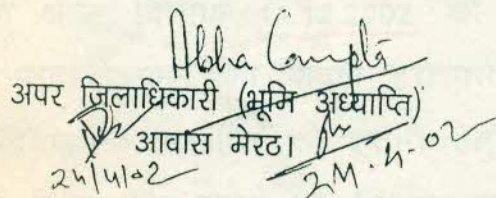 Abha Gupta
अपर ज़िलाधिकारी (भूमि अध्याप्ति)
आवास मेरठ।
24/4/02 24.4-02